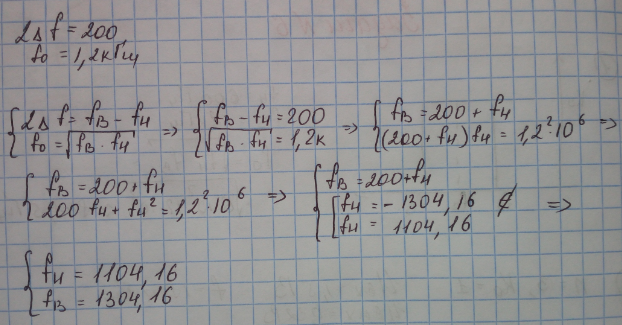 2Δf = 200,
f₀ = 1,2кГц
{2Δf = fв - fн; f₀ = √(fв · fн) ⇒ {fв - fн = 200; √(fв · fн) = 1,2к ⇒ {fв = 200 + fн; (200 + fн) fн = 1,2² · 10⁶ ⇒
{fв = 200 + fн; 200 fн + fн² = 1,2² · 10⁶ ⇒ {fв = 200 + fн; [fн = - 1304, 16 ∉; fн = 1104, 16 ⇒
{fн = 1104, 16
fв = 1304, 16